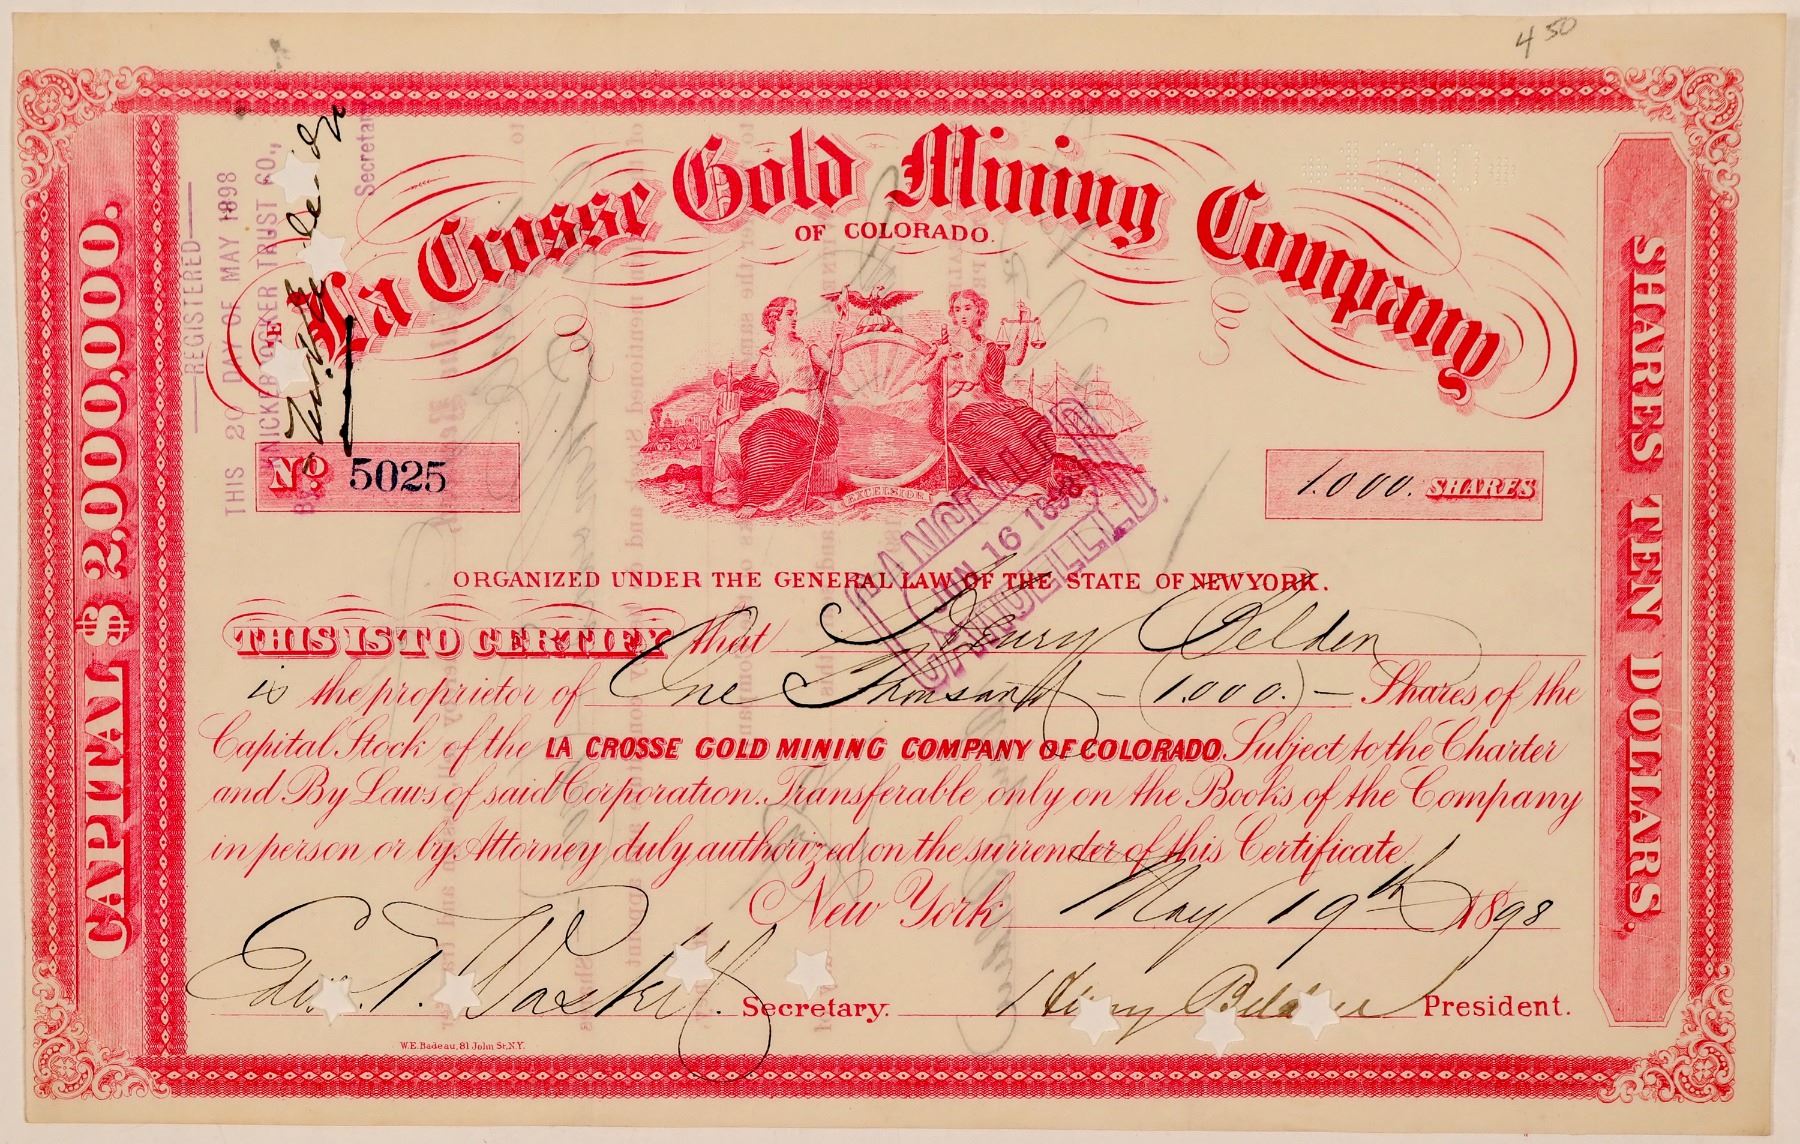 4 50
*1000*
La Crosse Gold Mining Company
OF COLORADO.
REGISTERED
THIS 20 DAY OF MAY 1898
KNICKERBOCKER TRUST CO.,
Secretary
CAPITAL $2,000,000.
SHARES TEN DOLLARS.
No 5025
EXCELSIOR
1.000. SHARES
CANCELLED
JUN 16 1898
CANCELLED
ORGANIZED UNDER THE GENERAL LAW OF THE STATE OF NEW YORK.
THIS IS TO CERTIFY that Henry Belden
is the proprietor of One Thousand – (1.000.) – Shares of the
Capital Stock of the LA CROSSE GOLD MINING COMPANY OF COLORADO. Subject to the Charter
and By Laws of said Corporation. Transferable only on the Books of the Company
in person or by Attorney duly authorized on the surrender of this Certificate
New York May 19th 1898
Secretary.
Henry Belden President.
W.E. Badeau, 81 John St, N.Y.